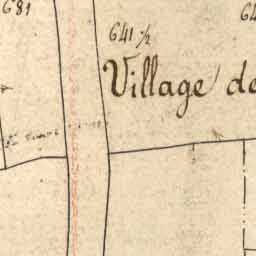 681
64
641 ½
Village de